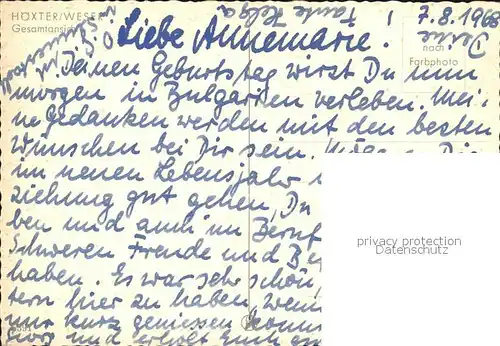 HÖXTER/WESER
Gesamtansicht
nach
Farbphoto
7.8.1968
Liebe Annemarie!
Deinen Geburtstag wirst Du nun
morgen in Bulgarien verleben. Mei
ne Gedanken werden mit den besten
Wünschen bei Dir sein.
im neuen Lebensjahr
ziehung gut gehen, Du
ben und auch im Beruf
Schweren Freude und Be
haben. Es war sehr schön,
tern hier zu haben, wenn
nur kurz geniessen
und erholt Euch
Deine
Tante Helga
privacy protection
Datenschutz